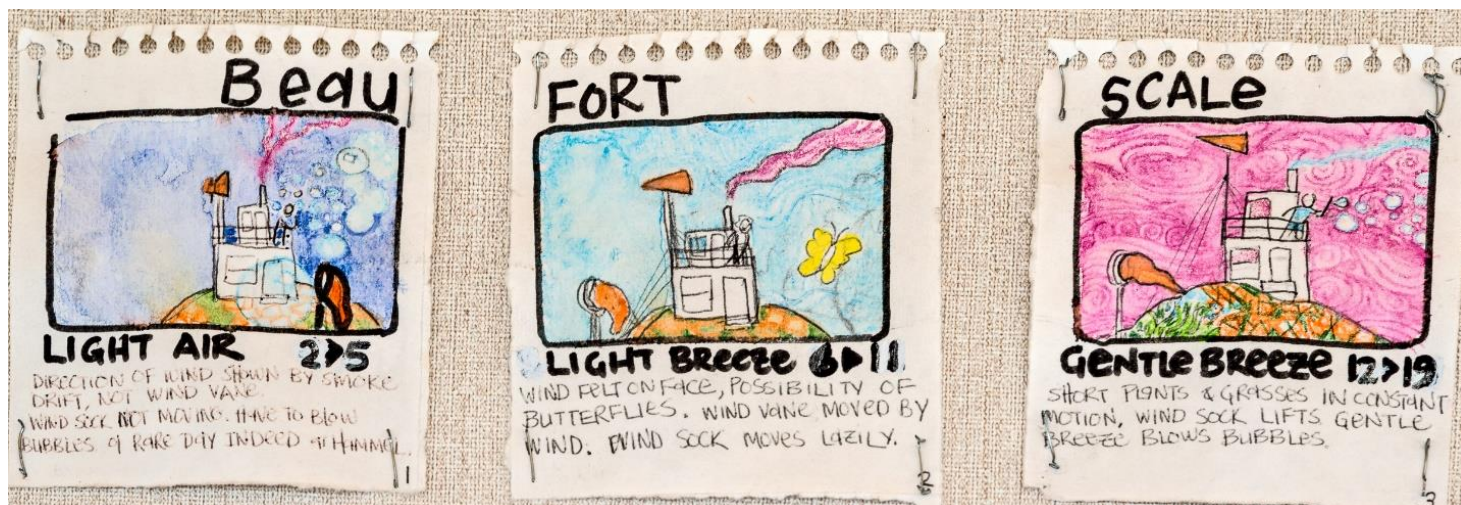 Beau
LIGHT AIR 2>5
DIRECTION OF WIND SHOWN BY SMOKE
DRIFT, NOT WIND VANE.
WIND SOCK NOT MOVING. HAVE TO BLOW
BUBBLES. A RARE DAY INDEED
1
FORT
LIGHT BREEZE 6>11
WIND FELT ON FACE, POSSIBILITY OF
BUTTERFLIES. WIND VANE MOVED BY
WIND. WIND SOCK MOVES LAZILY.
2
SCALe
GENTLE BREEZE 12>19
SHORT PLANTS & GRASSES IN CONSTANT
MOTION, WIND SOCK LIFTS. GENTLE
BREEZE BLOWS BUBBLES.
3